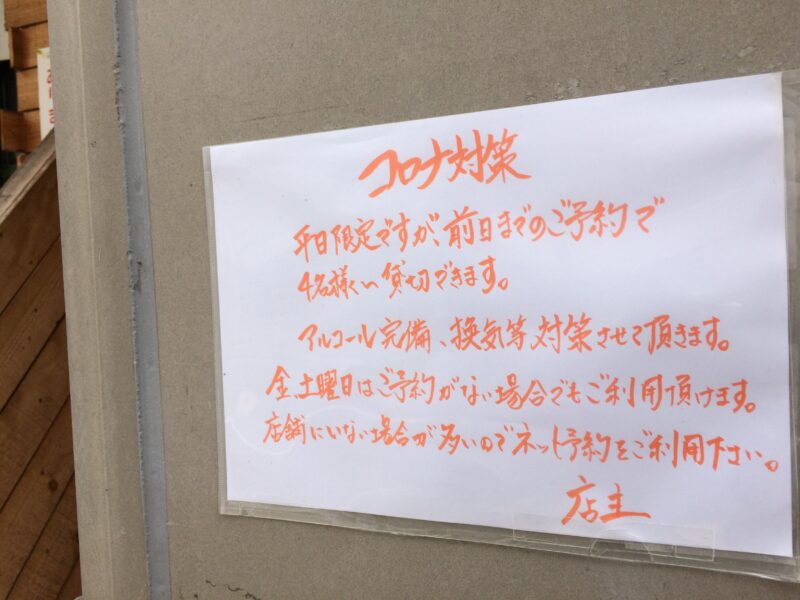 コロナ対策
平日限定ですが、前日までのご予約で
4名様〜貸切できます。
アルコール完備、換気等対策させて頂きます。
金、土曜日はご予約がない場合でもご利用頂けます。
店舗にいない場合が多いのでネット予約をご利用下さい。
店主